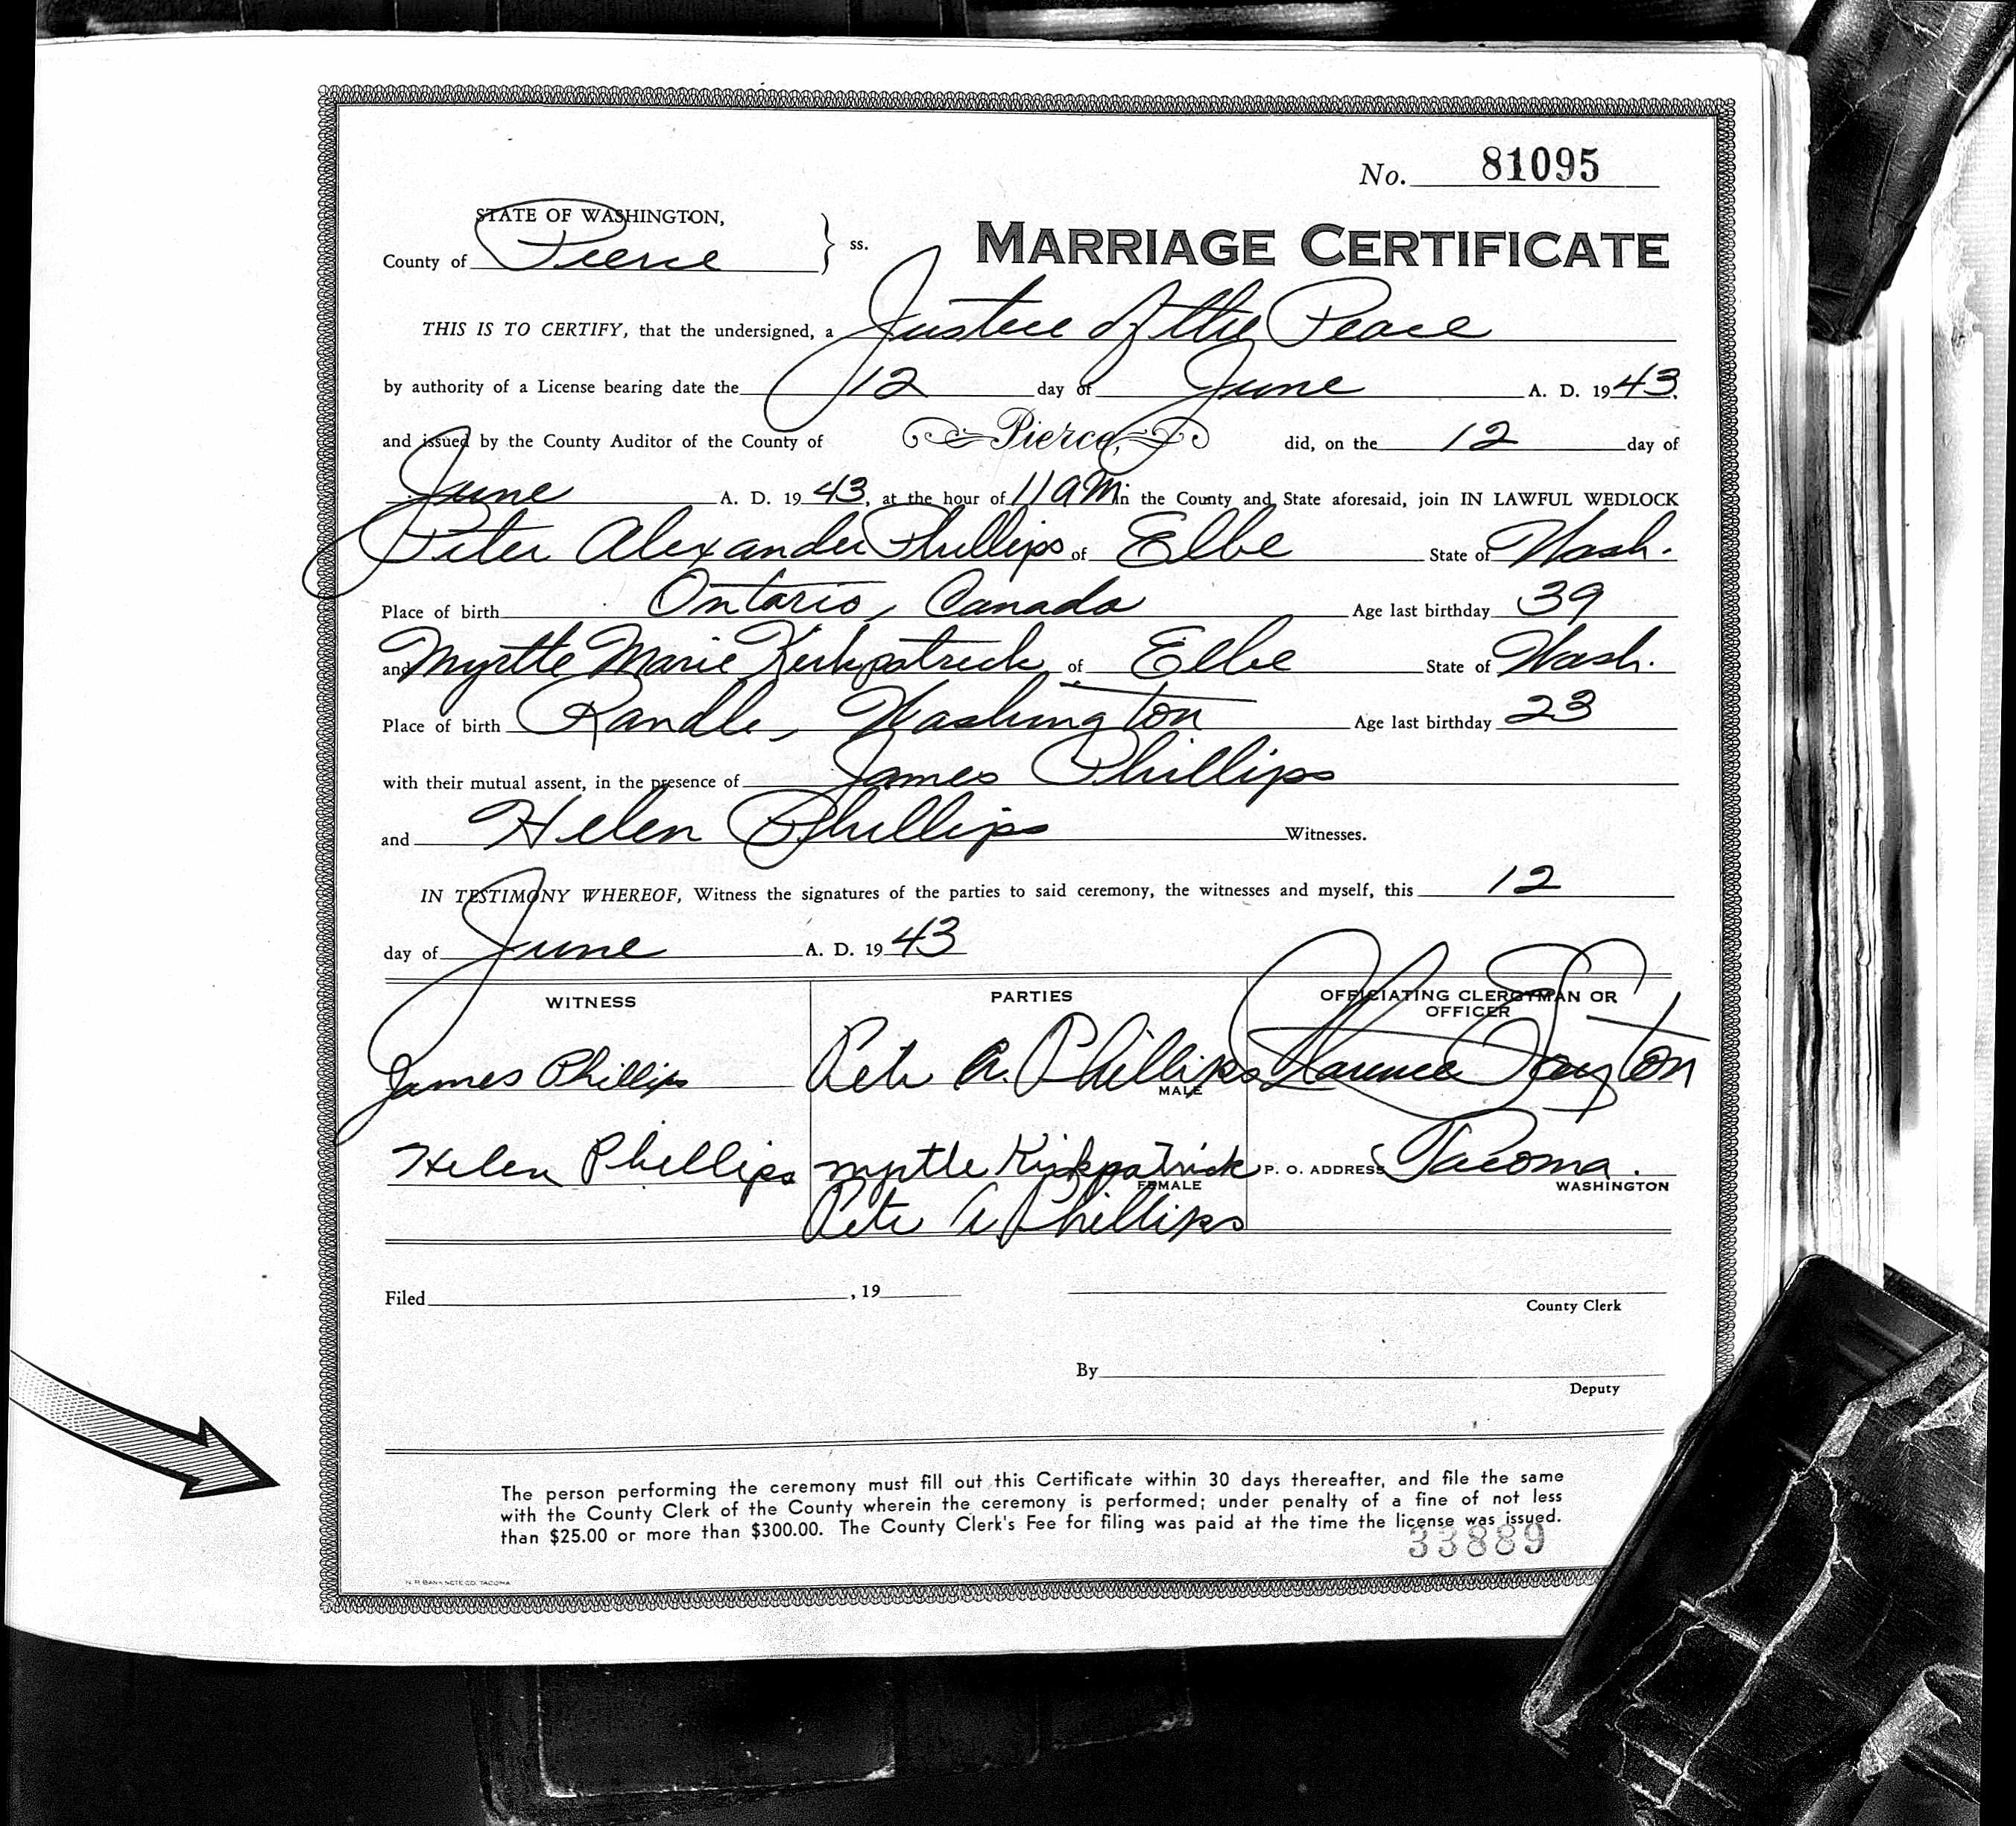 No. 81095
STATE OF WASHINGTON,
County of Pierce } ss.
MARRIAGE CERTIFICATE
THIS IS TO CERTIFY, that the undersigned, a Justice of the Peace
by authority of a License bearing date the 12 day of June A. D. 1943.
and issued by the County Auditor of the County of Pierce, did, on the 12 day of
June A. D. 1943, at the hour of 11 am in the County and State aforesaid, join IN LAWFUL WEDLOCK
Peter Alexander Phillips of Elbe State of Wash.
Place of birth Ontario, Canada Age last birthday 39
and Myrtle Marie Kirkpatrick of Elbe State of Wash.
Place of birth Randle, Washington Age last birthday 23
with their mutual assent, in the presence of James Phillips
and Helen Phillips Witnesses.
IN TESTIMONY WHEREOF, Witness the signatures of the parties to said ceremony, the witnesses and myself, this 12
day of June A. D. 1943
WITNESS PARTIES OFFICIATING CLERGYMAN OR
OFFICER
James Phillips Pete A. Phillips Clarence Layton
MALE
Helen Phillips Myrtle Kirkpatrick P. O. ADDRESS Tacoma.
FEMALE WASHINGTON
Pete A Phillips
Filed , 19
County Clerk
By
Deputy
The person performing the ceremony must fill out this Certificate within 30 days thereafter, and file the same
with the County Clerk of the County wherein the ceremony is performed; under penalty of a fine of not less
than $25.00 or more than $300.00. The County Clerk's Fee for filing was paid at the time the license was issued.
33889
N. P. BANK NOTE CO. TACOMA